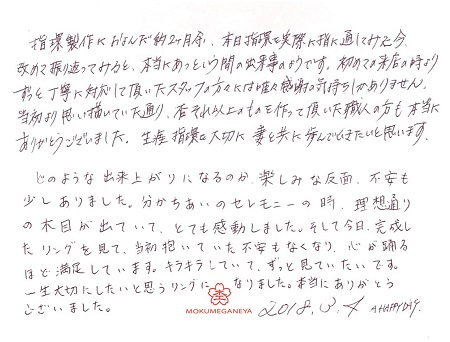 指環製作におよんだ約2ヶ月余、本日指環を実際に指に通してみた今、
改めて振り返ってみると、本当にあっという間の出来事のようです。初めての来店の時より
ずっと丁寧に対応して頂いたスタッフの方々には唯々感謝の気持ちしかありません。
当初より思い描いていた通り、否それ以上のものを作って頂いた職人の方も本当に
ありがとうございました。生涯指環を大切に妻と共に歩んでいきたいと思います。
どのような出来上がりになるのか、楽しみな反面、不安も
少しありました。分かちあいのセレモニーの時、理想通り
の木目が出ていて、とても感動しました。そして今日、完成し
たリングを見て、当初抱いていた不安もなくなり、心が踊る
ほど満足しています。キラキラしていて、ずっと見ていたいです。
一生大切にしたいと思うリングになりました。本当にありがとう
ございました。
MOKUMEGANEYA
2018.3.4 A HAPPY DAY.